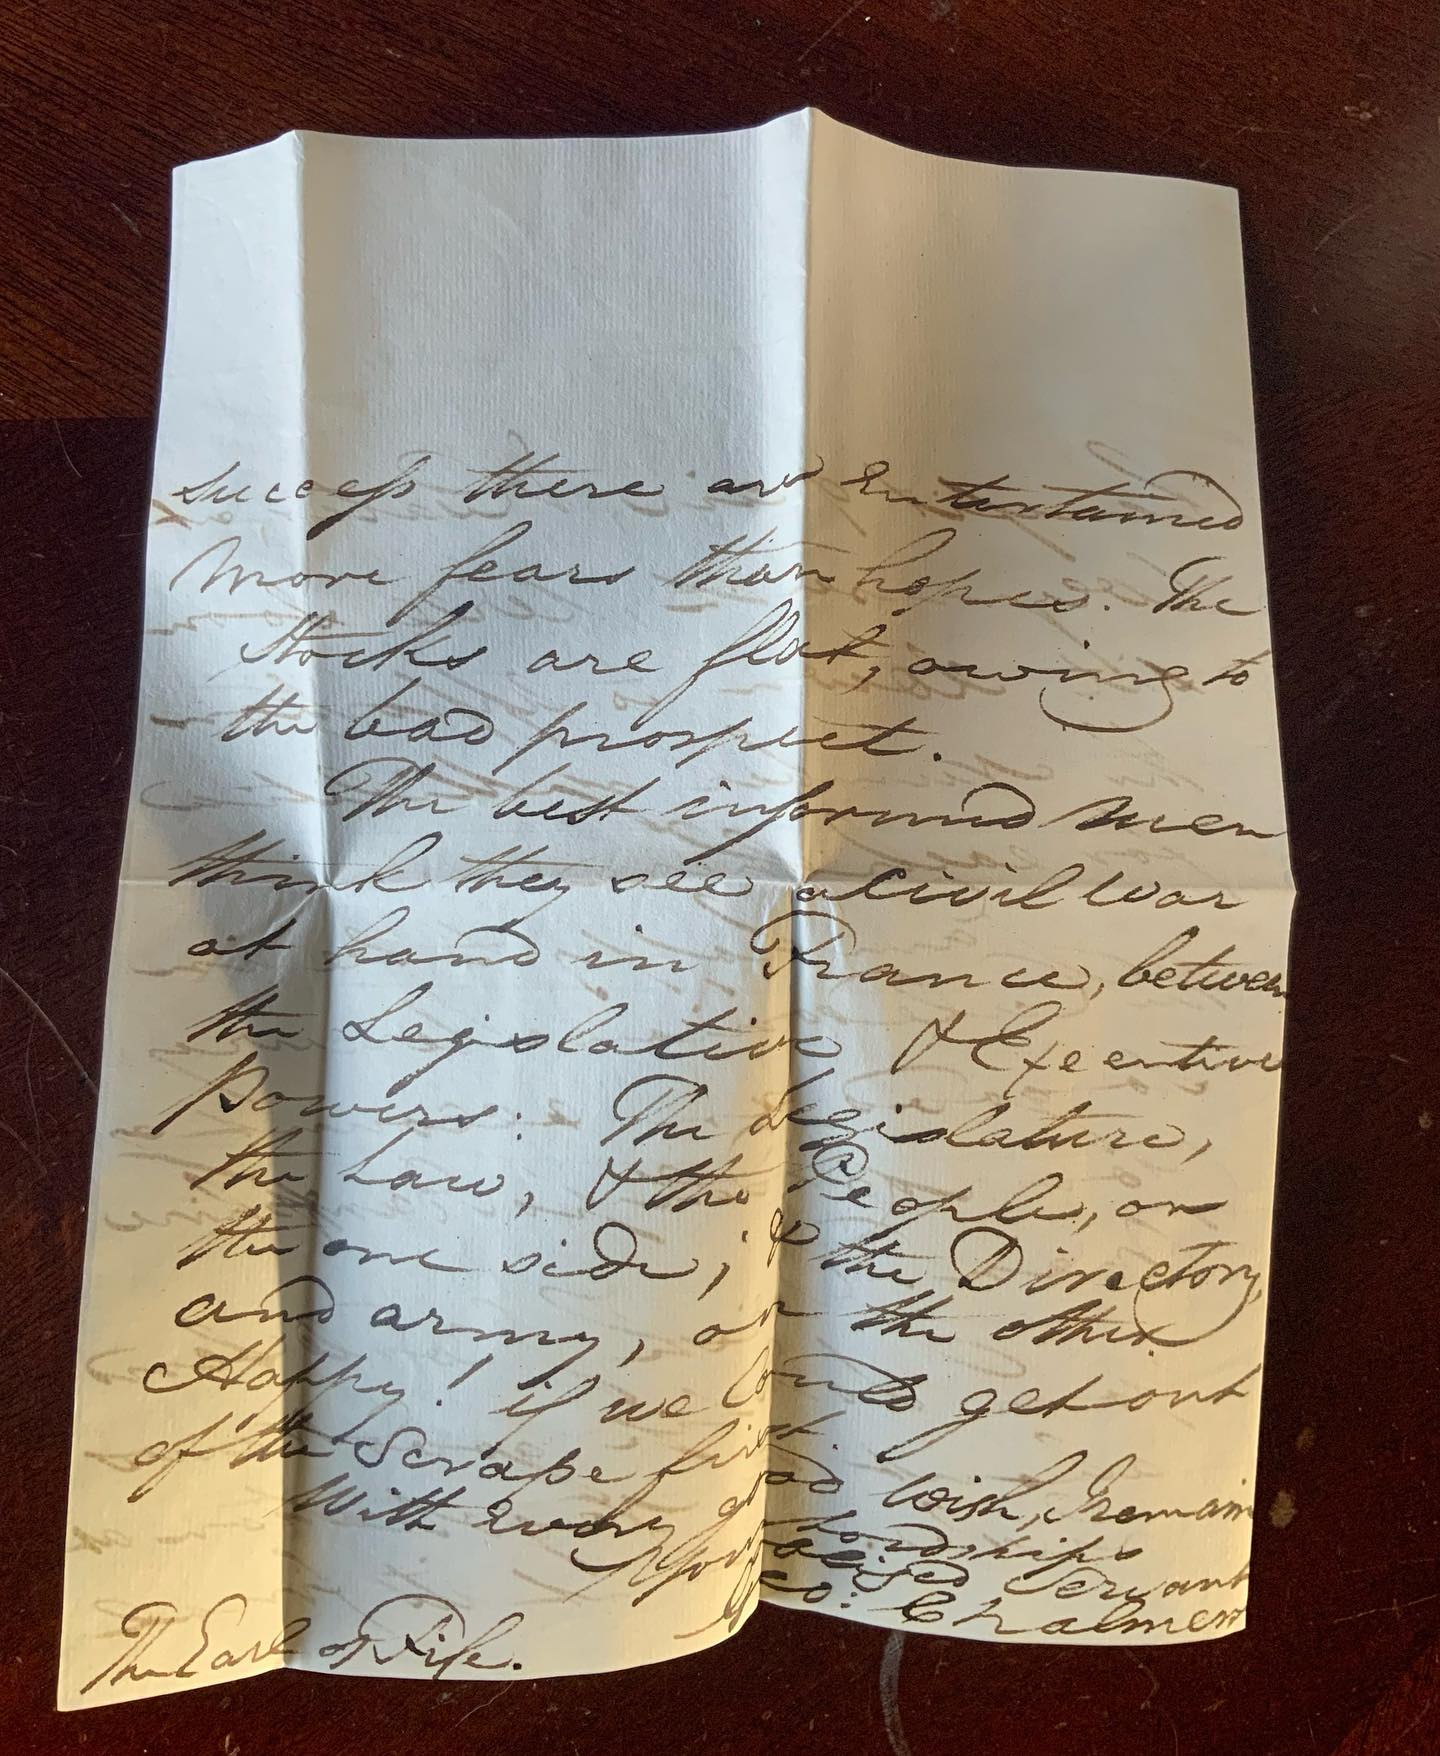 success there are Entertained
more fears than hopes. The
Stocks are flat, owing to
the bad prospect.
The best informed men
think they see a civil war
at hand in France, between
the Legislative & Executive
Powers: The Legislature,
the Law, & the People, on
the one side; & the Directory,
and army, on the other.
Happy! if we Could get out
of the Scrape first
With Every good wish, I remain
Your Lordships
obliged Servant
Geo: Chalmers
The Earl of Fife.